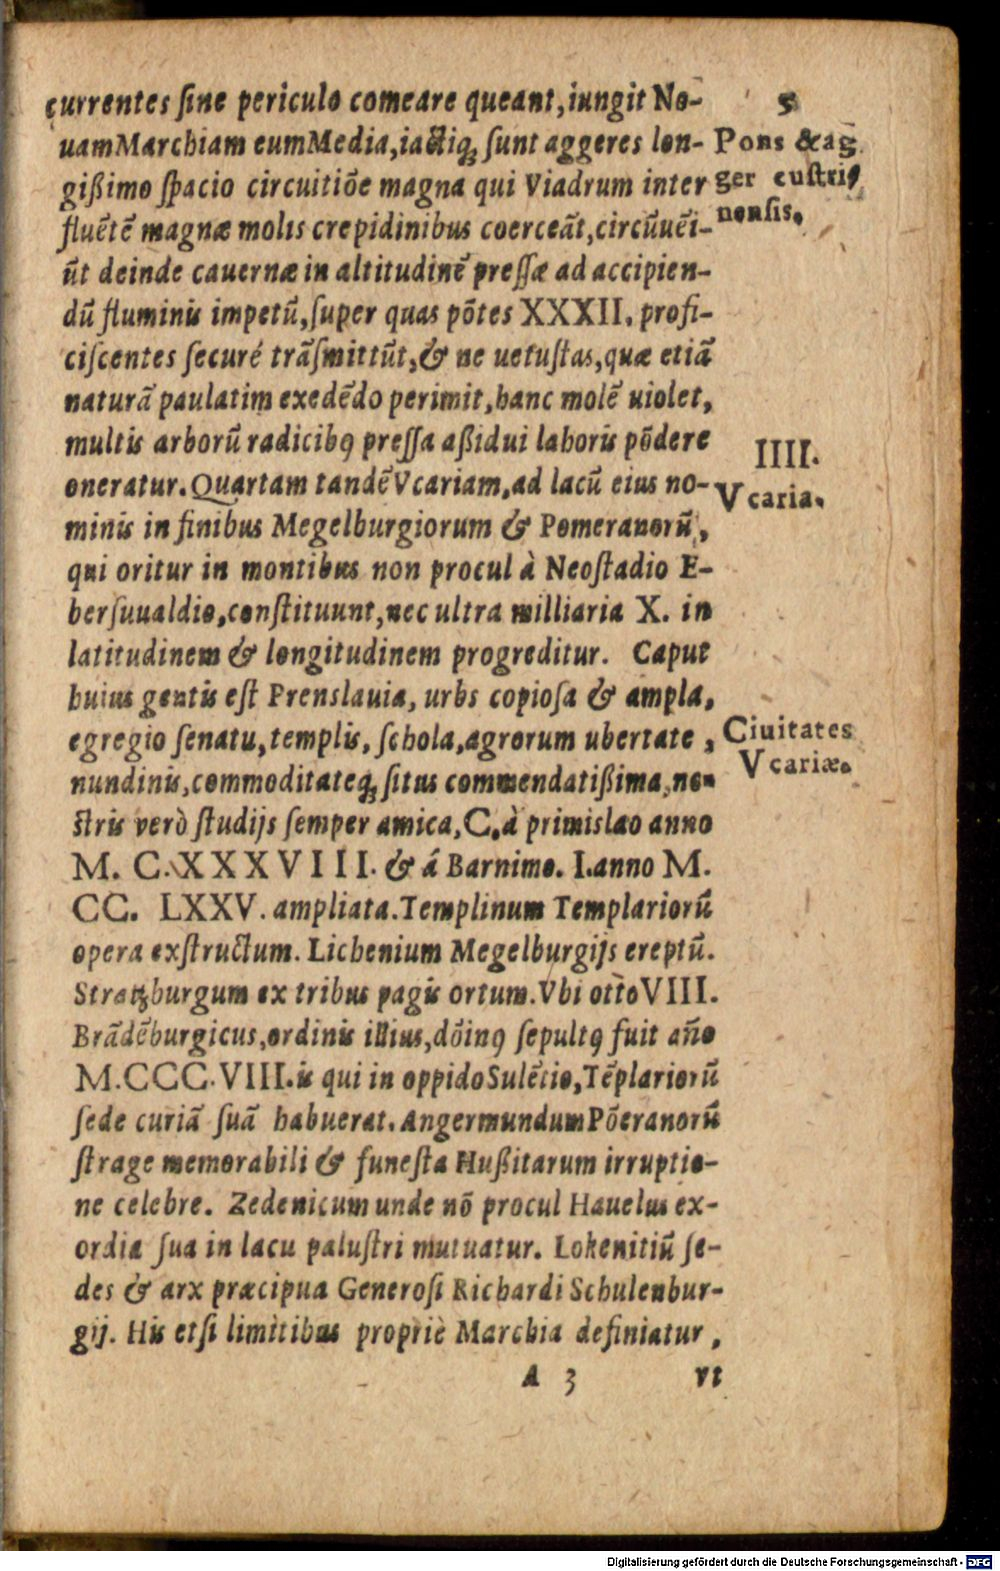 currentes ſine periculo comeare queant,iungit No-
5
uamMarchiam cumMedia,iactiq́; ſunt aggeres lon-
Pons & ag
gißimo ſpacio circuitiōe magna qui Viadrum inter
ger cuſtri
fluētē magnæ molis crepidinibus coerceāt,circūuēi-
nenſis.
ūt deinde cauernæ in altitudinē preſſæ ad accipien-
dū fluminis impetū,ſuper quas pōtes XXXII. profi-
ciſcentes securé trāſmittūt,& ne uetuſtas,quæ etiā
naturā paulatim exedēdo perimit,hanc molē uiolet,
multis arborū radicibꝰ preſſa aßidui laboris pōdere
IIII.
oneratur.Quartam tandē Vcariam,ad lacū eius no-
Vcaria.
minis in finibus Megelburgiorum & Pomeranorū,
qui oritur in montibus non procul à Neoſtadio E-
berſuualdio,conſtituunt,nec ultra milliaria X. in
latitudinem & longitudinem progreditur. Caput
huius gentis eſt Prenslauia, urbs copioſa & ampla,
egregio ſenatu,templis, ſchola,agrorum ubertate ,
Ciuitates
nundinis,commoditateq́; ſitus commendatißima,no-
Vcariæ.
ſtris verò ſtudijs ſemper amica, C.à primislao anno
M. C. XXXVIII. & á Barnimo. I.anno M.
CC. LXXV. ampliata.Templinum Templariorū
opera exſtructum. Lichenium Megelburgijs ereptū.
Stratzburgum ex tribus pagis ortum.Vbi otto VIII.
Brādēburgicus,ordinis illius,dōinꝰ ſepultꝰ fuit año
M.CCC.VIII.is qui in oppido Sulētio,Tēplariorū
ſede curiā ſuā habuerat.AngermundumPōeranorū
ſtrage memorabili & funeſta Hußitarum irruptio-
ne celebre. Zedenicum unde nō procul Hauelus ex-
ordia ſua in lacu paluſtri mutuatur. Lokenitiū ſe-
des & arx præcipua Generoſi Richardi Schulenbur-
gij. His etſi limitibus propriè Marchia definiatur ,
A 3 vt
Digitalisierung gefördert durch die Deutsche Forschungsgemeinschaft - DFG